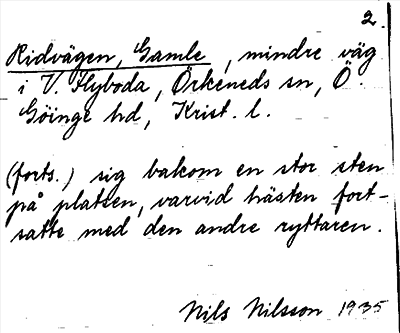 2.
Ridvägen, Gamle, mindre väg
i V. Flyboda, Örkeneds sn, Ö.
Göinge hd, Krist. l.
(forts.) sig bakom en stor sten
på platsen, varvid hästen fort-
satte med den andre ryttaren.
Nils Nilsson 1935